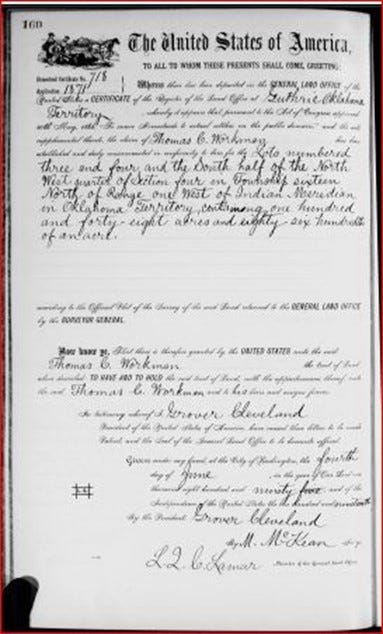 160
The United States of America,
TO ALL TO WHOM THESE PRESENTS SHALL COME, GREETING:
Homestead Certificate No. 718
Application 1871
Whereas there has been deposited in the GENERAL LAND OFFICE of the
United States a CERTIFICATE of the Register of the Land Office at Guthrie Oklahoma
Territory, whereby it appears that, pursuant to the Act of Congress approved
20th May, 1862, "To secure Homesteads to actual settlers on the public domain," and the acts
supplemental thereto, the claim of Thomas C. Workman has been
established and duly consummated in conformity to law for the Lots numbered
three and four and the South half of the North
West quarter of Section four in Township sixteen
North of Range one West of Indian Meridian
in Oklahoma Territory, containing one hundred
and forty-eight acres and eighty-six hundredths
of an acre.
according to the Official Plat of the Survey of the said Land returned to the GENERAL LAND OFFICE
by the SURVEYOR GENERAL.
Now know ye, That there is therefore granted by the UNITED STATES unto the said
Thomas C. Workman the tract of Land
above described: TO HAVE AND TO HOLD the said tract of Land, with the appurtenances thereof, unto
the said Thomas C. Workman and to his heirs and assigns forever.
In testimony whereof I, Grover Cleveland
President of the United States of America, have caused these letters to be made
Patent, and the Seal of the General Land Office to be hereunto affixed.
Given under my hand, at the City of Washington, the fourth
day of June, in the year of Our Lord one
thousand eight hundred and ninety five, and of the
Independence of the United States the one hundred and nineteenth
By the President: Grover Cleveland
By M. McKean, Sec'y.
L. Q. C. Lamar Recorder of the General Land Office.